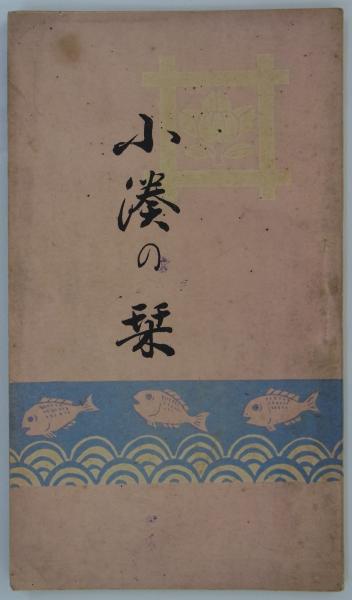 小湊の栞